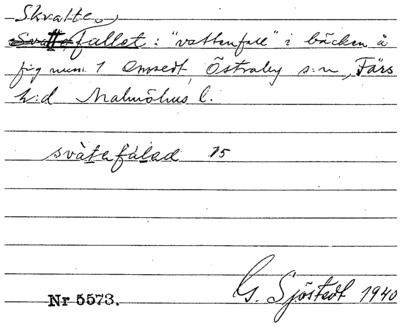 Skvatte
Svatte Fallet: "vattenfall" i bäcken å
fig num. 1 Onsedt, Östraby s:n, Färs
h:d Malmöhus l.
svàtefálad 15
Nr 5573.
G. Sjöstedt 1940